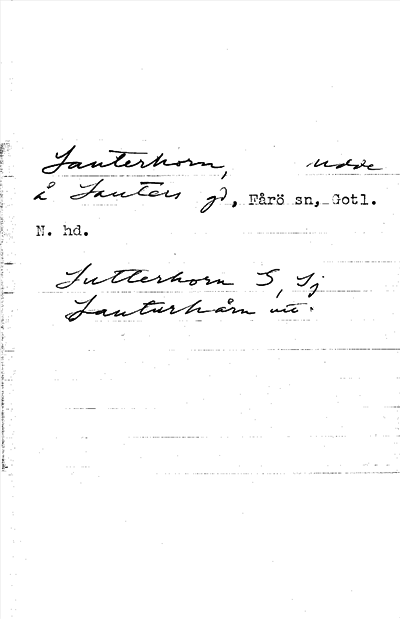 Sauterhorn, udde
å Sauters gd, Fårö sn, Gotl.
N. hd.
Sutterhorn S, Sj
Sauturhårn utt.